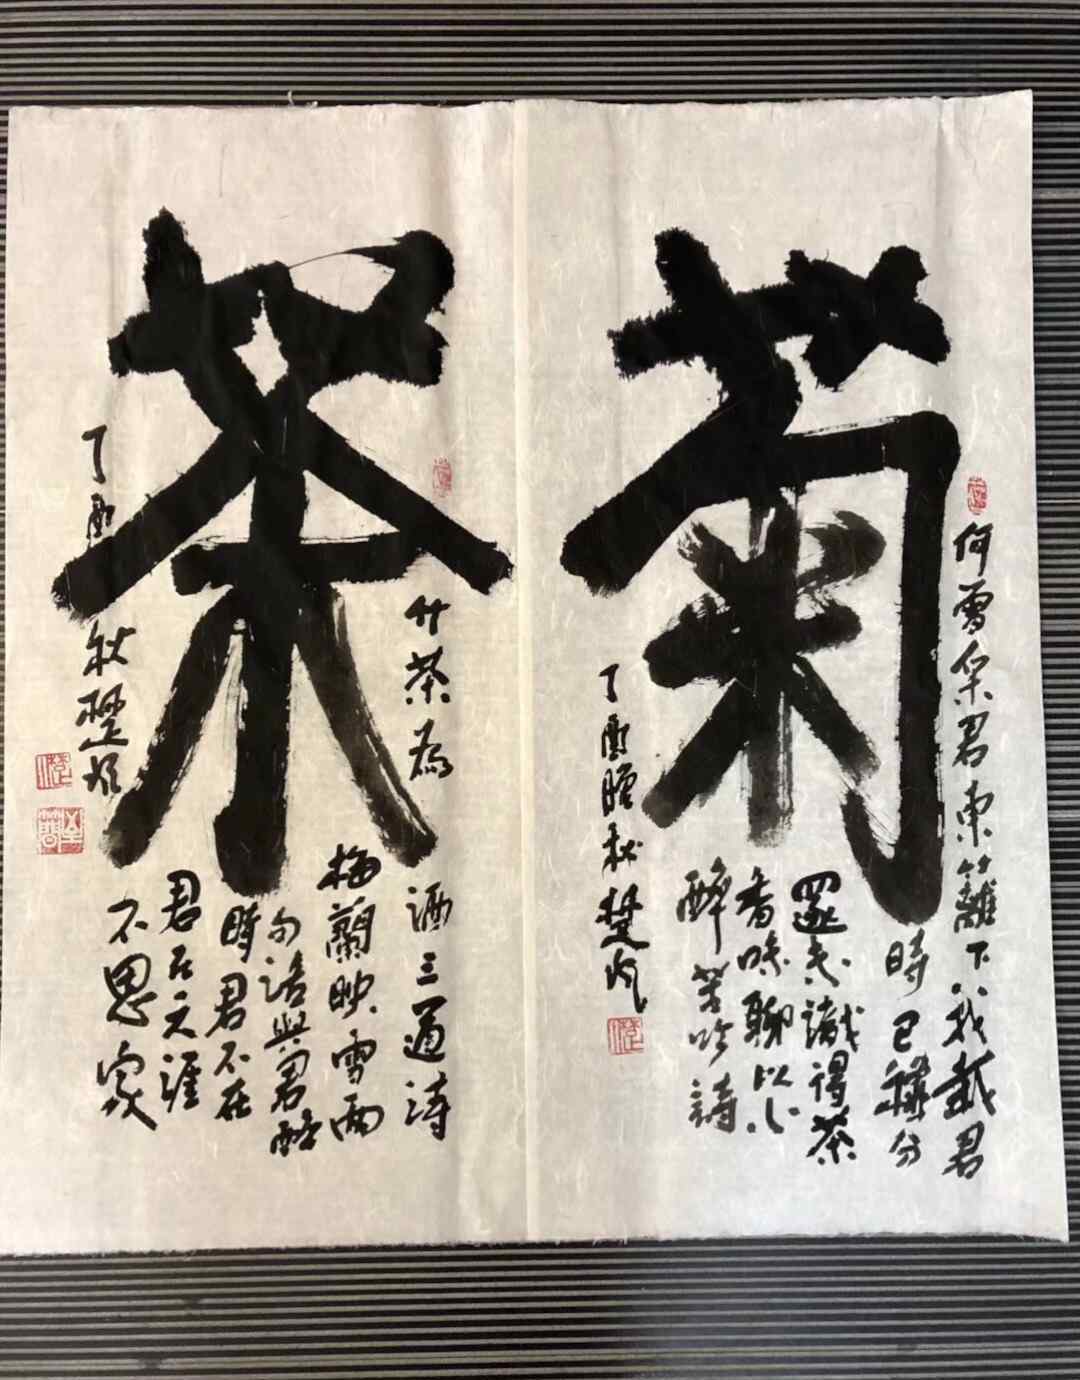 菊
何曾采君東籬下我栽君
時已積分
還未識得茶
香味聊以心
醉苦吟詩
丁酉暗秋楚
茶
竹茶為
酒三道詩
梅蘭映雪雨
句語與君醉
時君不在
君在天涯
不思家
丁酉
秋楚